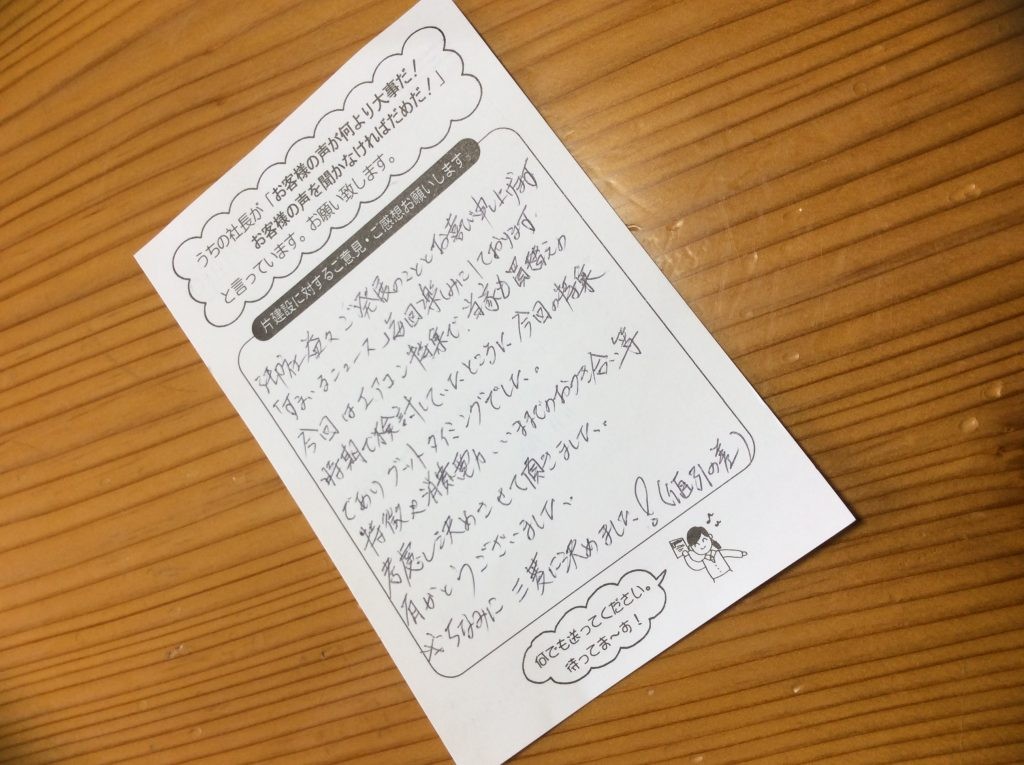 うちの社長が「お客様の声が何より大事だ！
お客様の声を聞かなければだめだ！」
と言っています。お願い致します。
片建設に対するご意見・ご感想お願いします。
益々ご発展のこととお喜び申し上げます
「すまいるニュース」毎回楽しみにしております。
今回はエアコン特集で、当家も買替えの
時期で検討していたところに今回の特集
でありグットタイミングでした。
特徴や消費電力、いままでのおつき合い等
考慮し決めさせて頂きました。
有がとうございました。
※ちなみに 三菱に決めました！（値引の差）
何でも送ってください。
待ってま〜す！